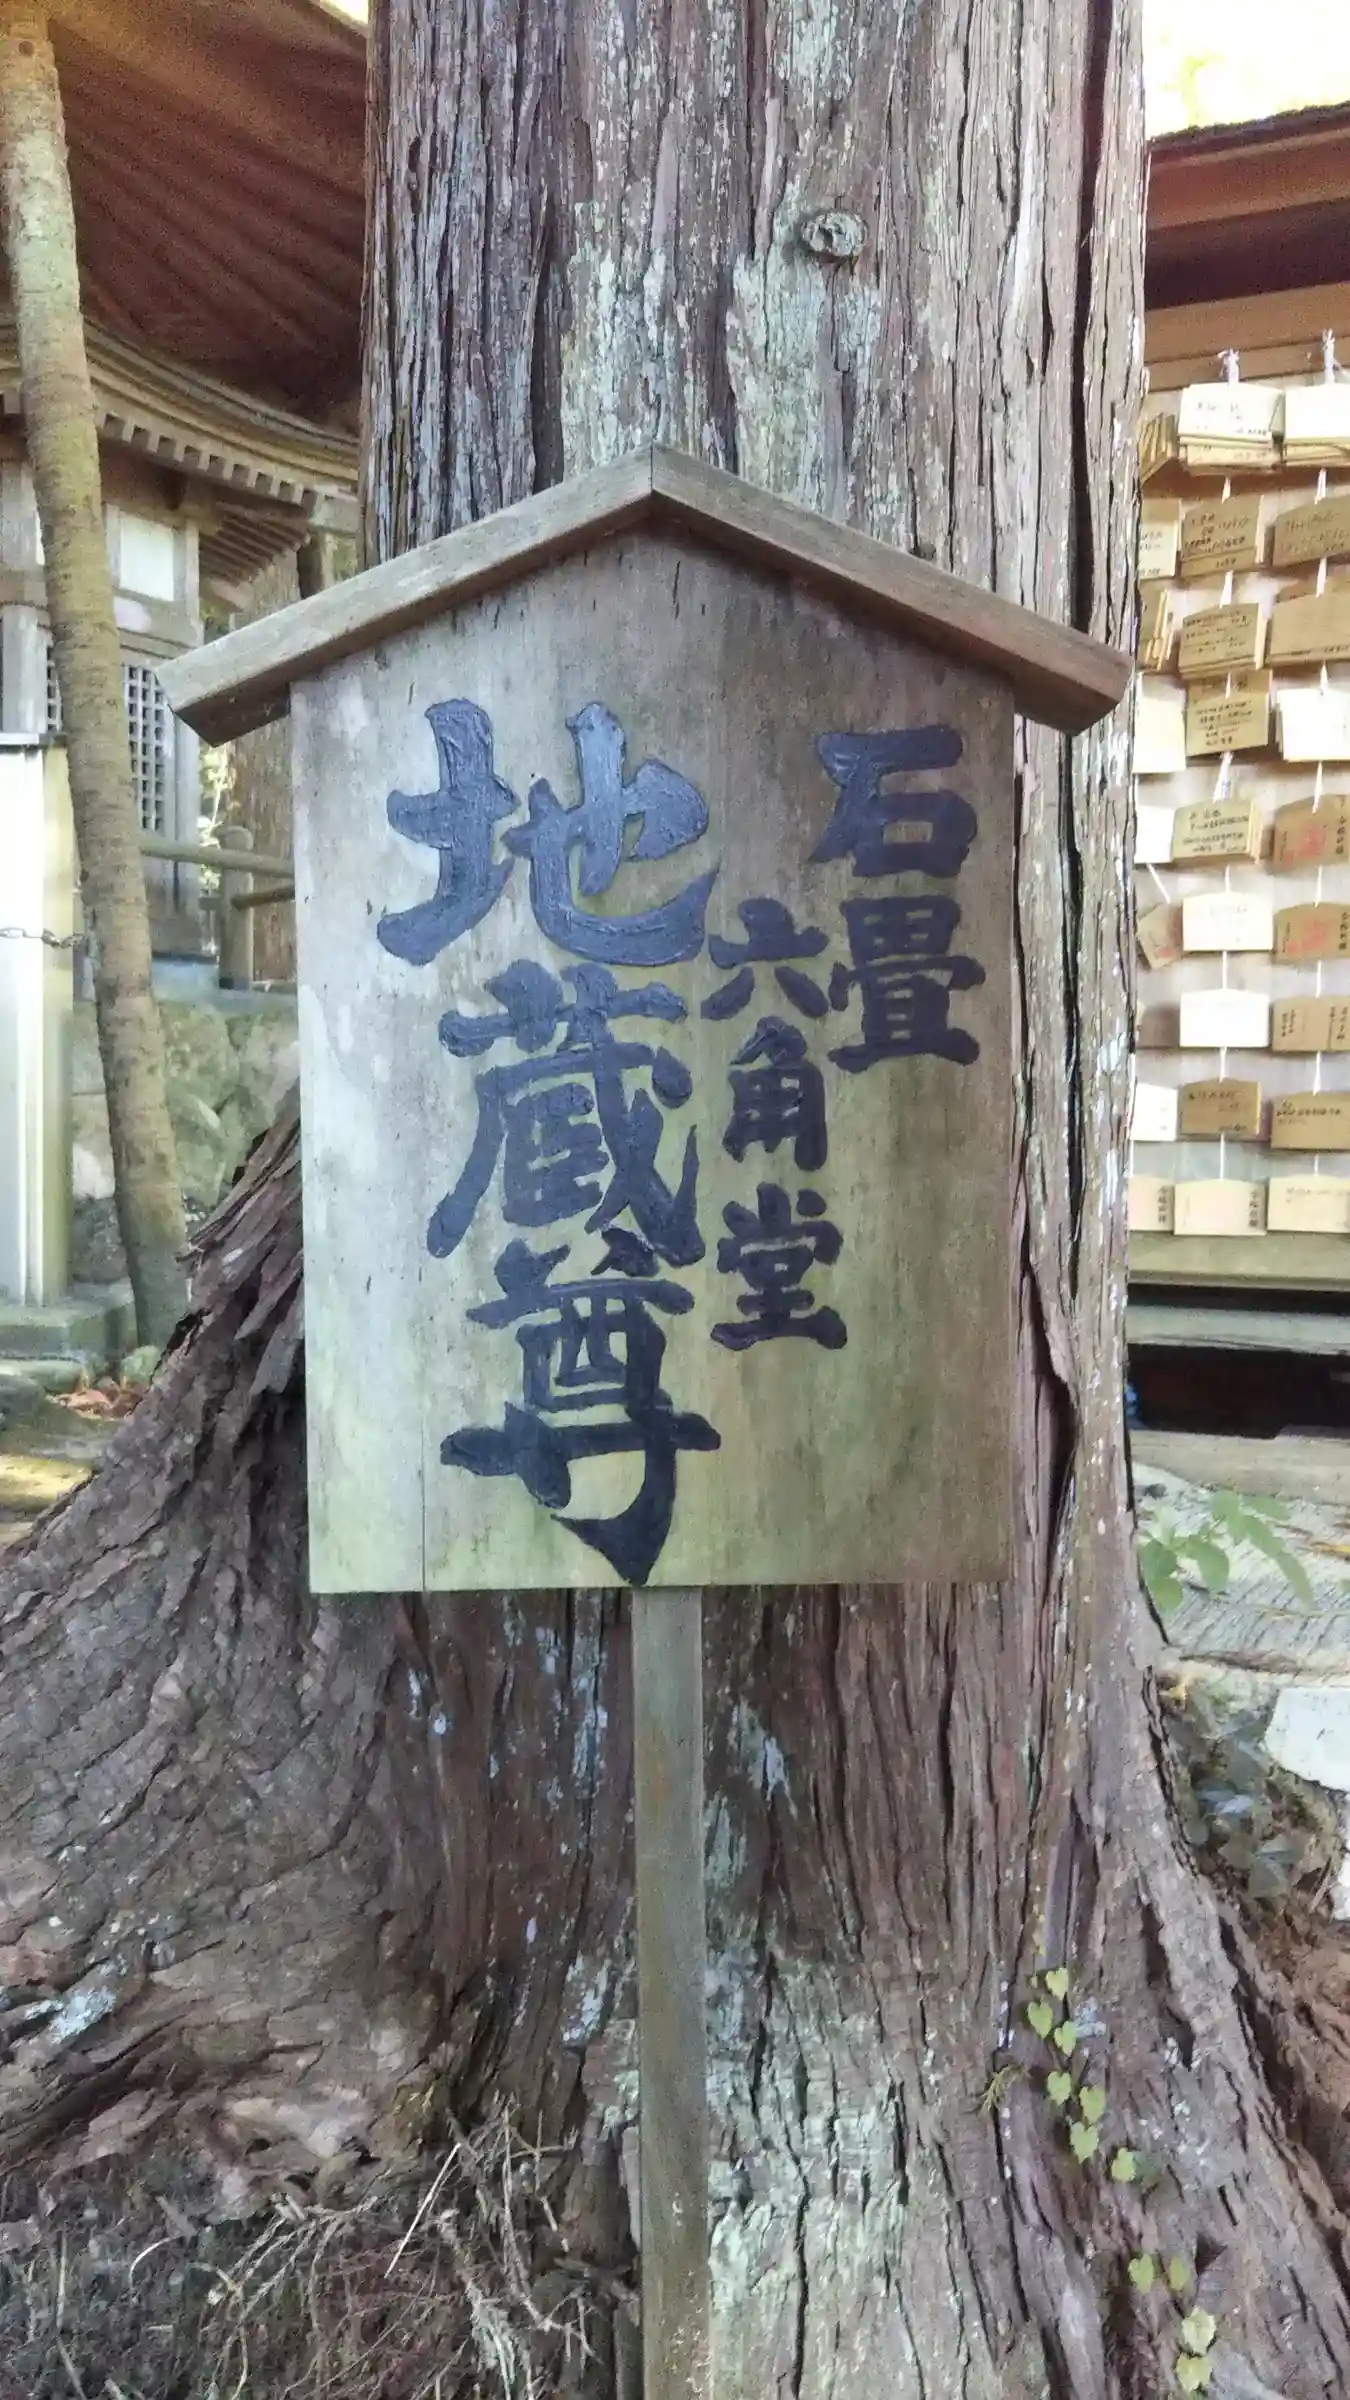 石畳
六角堂
地蔵尊